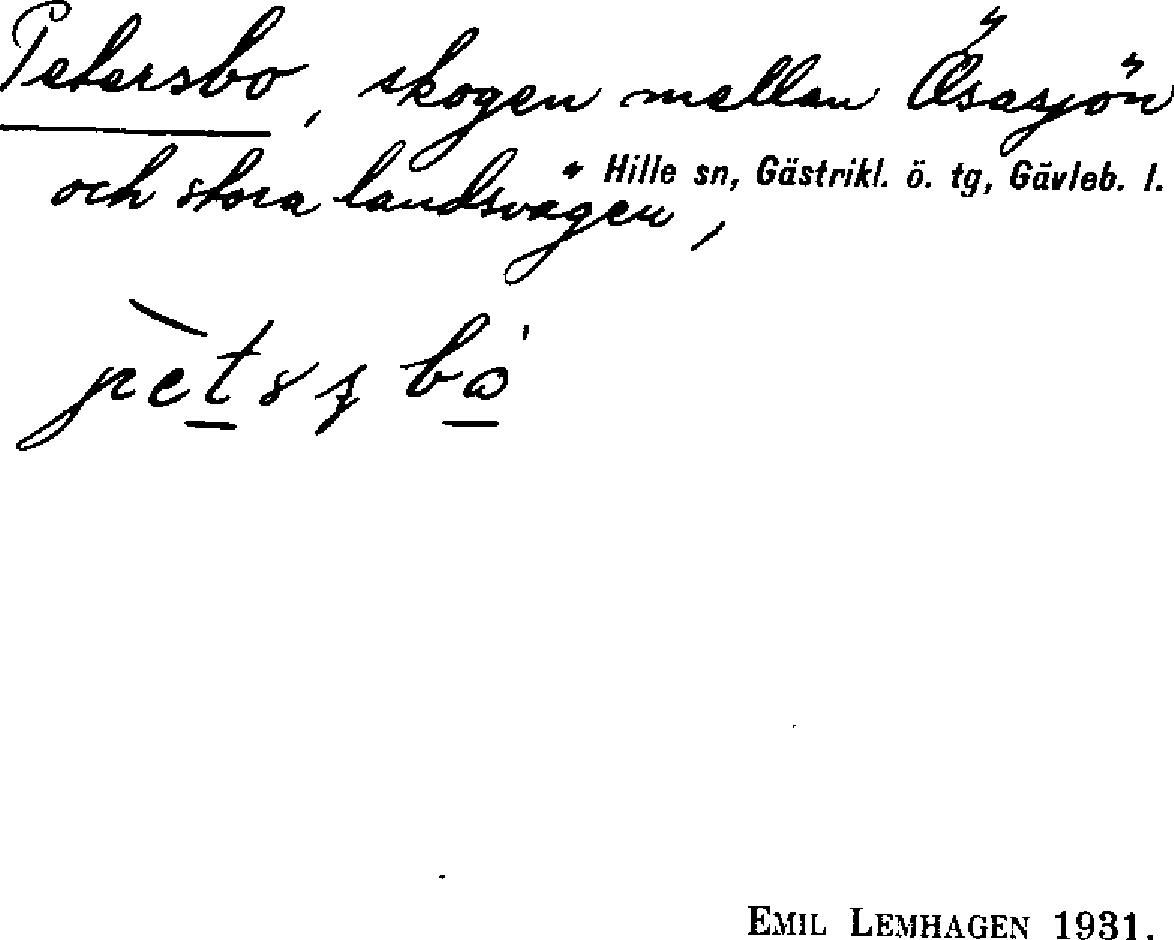 Petersbo, skogen mellan Ösasjön
och stora landsvägen,
Hille sn, Gästrikl. ö. tg, Gävleb. l.
EMIL LEMHAGEN 1931.